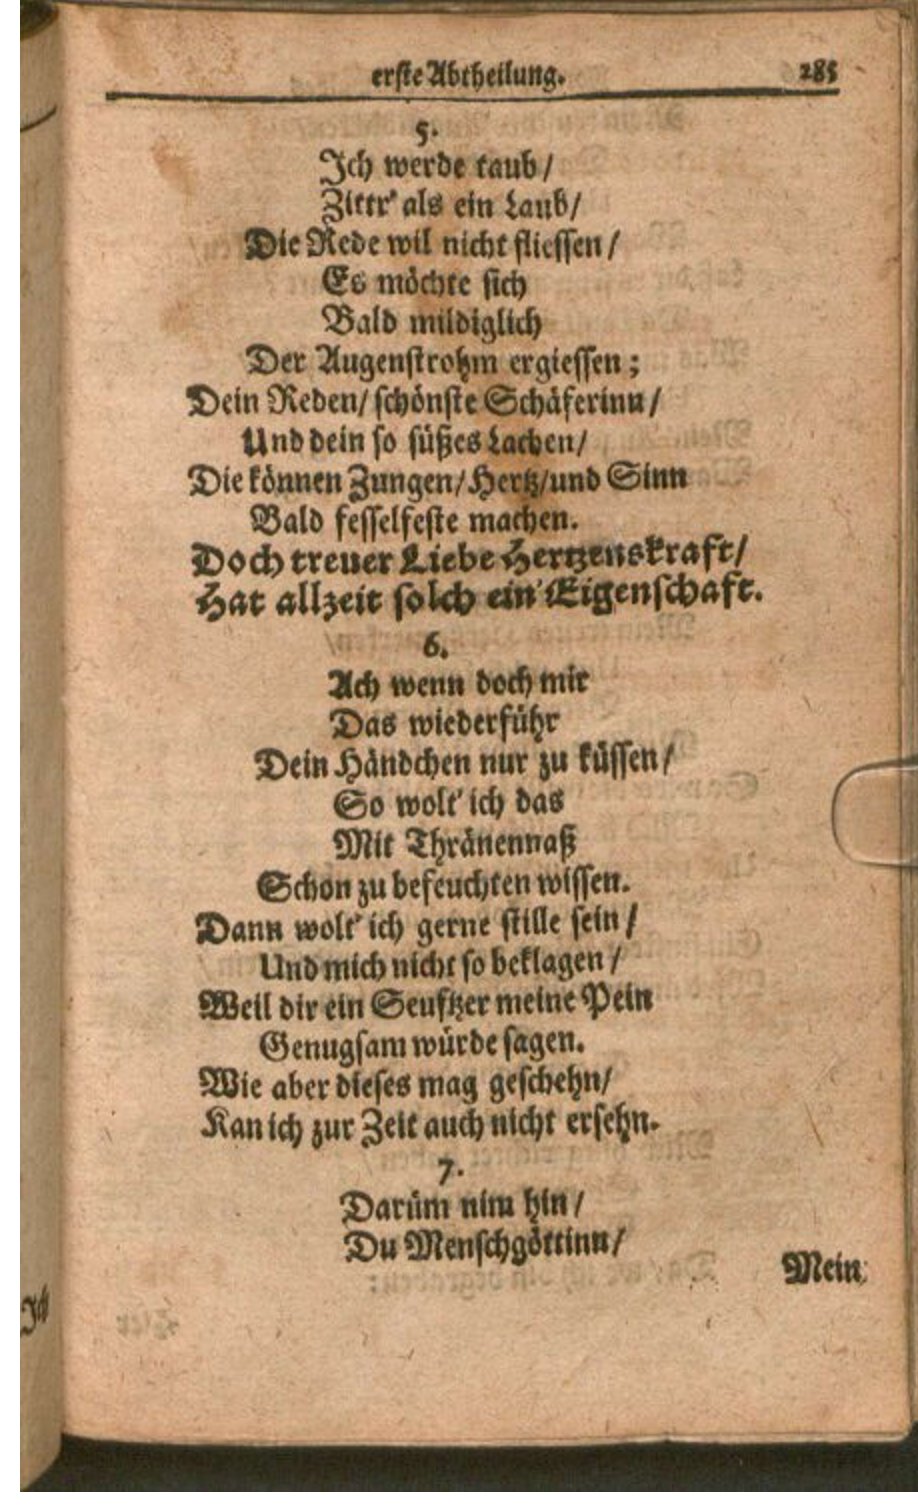 erste Abtheilung. 285
5.
Ich werde taub/
Zittr' als ein Laub/
Die Rede wil nicht fliessen/
Es möchte sich
Bald mildiglich
Der Augenstrohm ergiessen;
Dein Reden/ schönste Schäferinn/
Und dein so süßes Lachen/
Die können Zungen/Hertz/und Sinn
Bald fesselfeste machen.
Doch treuer Liebe Hertzenskraft/
Hat allzeit solch ein' Eigenschaft.
6.
Ach wenn doch mir
Das wiederführ
Dein Händchen nur zu küssen/
So wolt' ich das
Mit Thränennaß
Schon zu befeuchten wissen.
Dann wolt' ich gerne stille sein/
Und mich nicht so beklagen/
Weil dir ein Seuftzer meine Pein
Genugsam würde sagen.
Wie aber dieses mag geschehn/
Kan ich zur Zeit auch nicht ersehn.
7.
Darüm nim hin/
Du Menschgöttinn/
Mein
Ich